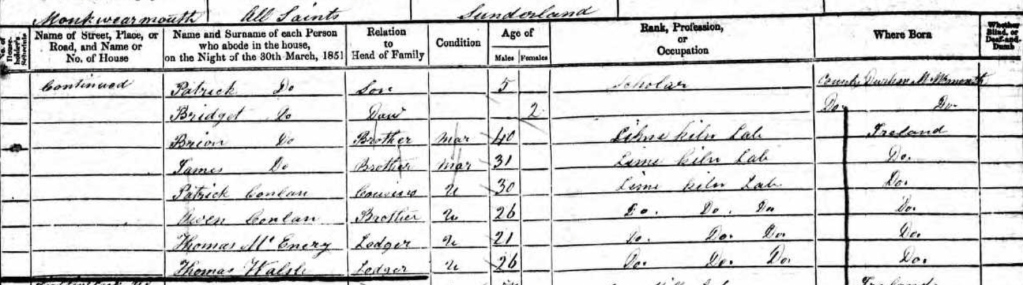 Monkwearmouth All Saints Sunderland
No. of House-holder's Schedule
Name of Street, Place, or Road, and Name or No. of House
Name and Surname of each Person who abode in the house, on the Night of the 30th March, 1851
Relation to Head of Family
Condition
Age of
Males Females
Rank, Profession, or Occupation
Where Born
Whether Blind, or Deaf-and-Dumb
Continued Patrick Do Son 5 Scholar County Durham M.Wearmouth
Bridget Do Daur 2 Do. Do.
Brian Do Brother Mar 40 Lime kiln Lab Ireland
James Do Brother Mar 31 Lime kiln Lab Do.
Patrick Conlan Cousin U 30 Lime kiln Lab Do.
Owen Conlan Brother U 26 Do. Do. Do Do.
Thomas McEnery Lodger U 21 Do. Do. Do Do.
Thomas Walsh Lodger U 26 Do. Do. Do Do.
Ireland